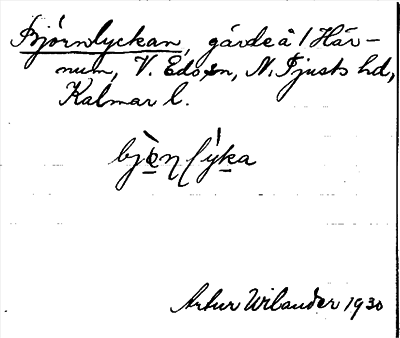 Björnlyckan, gärde å 1 Här-
num, V. Eds sn, N. Tjusts hd,
Kalmar l.
Artur Wilander 1930